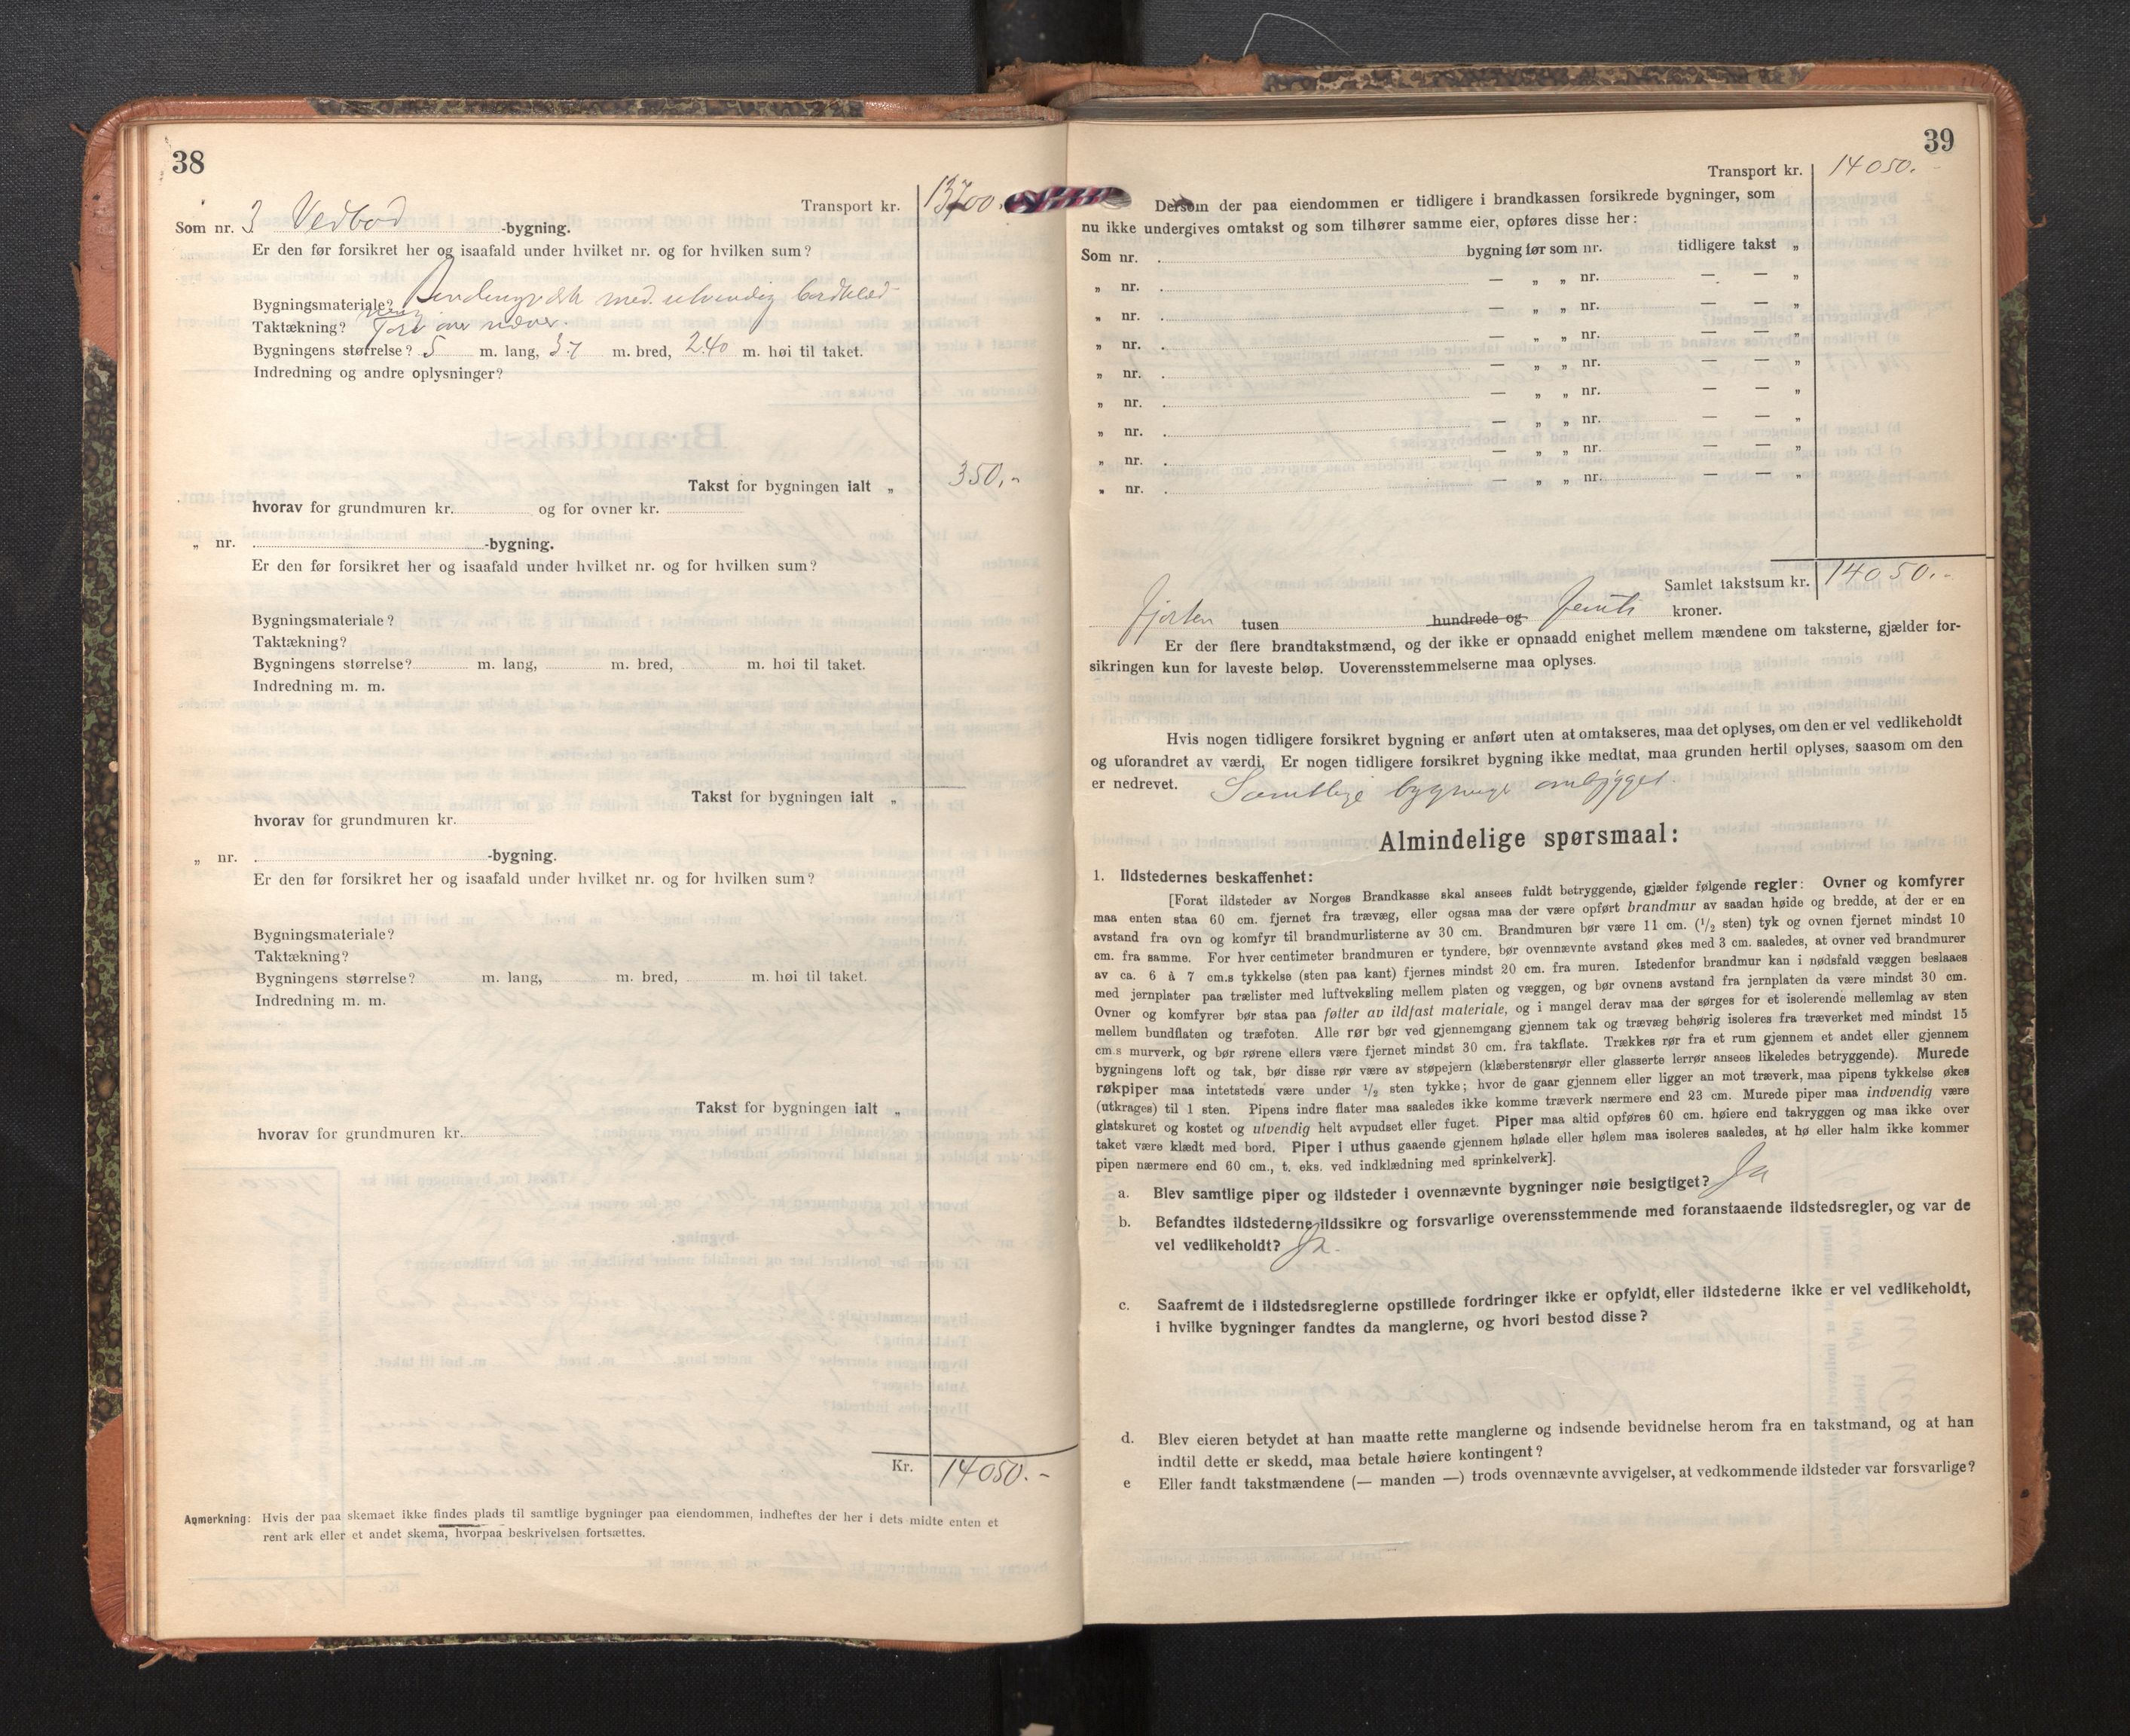 38
Transport kr. 13700.
Som nr. 3 Vedbod -bygning.
Er den før forsikret her og isaafald under hvilket nr. og for hvilken sum?
Bygningsmateriale? Bindingsverk med utvendig bordklæd
Taktækning? Torv over næver.
Bygningens størrelse? 5 m. lang, 3.7 m. bred, 2.40 m. høi til taket.
Indredning og andre oplysninger?
Takst for bygningen ialt „ 350,-
hvorav for grundmuren kr. og for ovner kr.
„ nr. -bygning.
Er den før forsikret her og isaafald under hvilket nr. og for hvilken sum?
Bygningsmateriale?
Taktækning?
Bygningens størrelse? m. lang, m. bred, m. høi til taket.
Indredning m. m.
Takst for bygningen ialt „
hvorav for grundmuren kr.
„ nr. -bygning.
Er den før forsikret her og isaafald under hvilket nr. og for hvilken sum?
Bygningsmateriale?
Taktækning?
Bygningens størrelse? m. lang, m. bred, m. høi til taket.
Indredning m. m.
Takst for bygningen ialt „
hvorav for grundmuren kr.
Kr. 14050.-
Anmerkning: Hvis der paa skemaet ikke findes plads til samtlige bygninger paa eiendommen, indheftes der her i dets midte enten et
rent ark eller et andet skema, hvorpaa beskrivelsen fortsættes.
39
Transport kr. 14050.-
Dersom der paa eiendommen er tidligere i brandkassen forsikrede bygninger, som
nu ikke undergives omtakst og som tilhører samme eier, opføres disse her:
Som nr. bygning før som nr. tidligere takst „
„ nr. — „ „ nr. — — „
„ nr. — „ „ nr. — — „
„ nr. — „ „ nr. — — „
„ nr. — „ „ nr. — — „
„ nr. — „ „ nr. — — „
„ nr. — „ „ nr. — — „
„ nr. — „ „ nr. — — „
„ nr. — „ „ nr. — — „
Samlet takstsum kr. 14050.-
Fjorten tusen hundrede og femti kroner.
Er der flere brandtakstmænd, og der ikke er opnaadd enighet mellem mændene om taksterne, gjælder for-
sikringen kun for laveste beløp. Uoverensstemmelserne maa oplyses.
Hvis nogen tidligere forsikret bygning er anført uten at omtakseres, maa det oplyses, om den er vel vedlikeholdt
og uforandret av værdi. Er nogen tidligere forsikret bygning ikke medtat, maa grunden hertil oplyses, saasom om den
er nedrevet. Samtlige bygninger ombygget.
Almindelige spørsmaal:
1. Ildstedernes beskaffenhet:
[Forat ildsteder av Norges Brandkasse skal ansees fuldt betryggende, gjælder følgende regler: Ovner og komfyrer
maa enten staa 60 cm. fjernet fra trævæg, eller ogsaa maa der være opført brandmur av saadan høide og bredde, at der er en
avstand fra ovn og komfyr til brandmurlisterne av 30 cm. Brandmuren bør være 11 cm. (1/2 sten) tyk og ovnen fjernet mindst 10
cm. fra samme. For hver centimeter brandmuren er tyndere, bør ovennævnte avstand økes med 3 cm. saaledes, at ovner ved brandmurer
av ca. 6 à 7 cm.s tykkelse (sten paa kant) fjernes mindst 20 cm. fra muren. Istedenfor brandmur kan i nødsfald væggen beslaaes
med jernplater paa trælister med luftveksling mellem platen og væggen, og bør ovnens avstand fra jernplaten da være mindst 30 cm.
Ovner og komfyrer bør staa paa føtter av ildfast materiale, og i mangel derav maa der sørges for et isolerende mellemlag av sten
mellem bundflaten og træfoten. Alle rør bør ved gjennemgang gjennem tak og trævæg behørig isoleres fra træverket med mindst 15
cm.s murverk, og bør rørene ellers være fjernet mindst 30 cm. fra takflate. Trækkes rør fra et rum gjennem et andet eller gjennem
bygningens loft og tak, bør disse rør være av støpejern (klæberstensrør eller glasserte lerrør ansees likeledes betryggende). Murede
røkpiper maa intetsteds være under 1/2 sten tykke; hvor de gaar gjennem eller ligger an mot træverk, maa pipens tykkelse økes
(utkrages) til 1 sten. Pipens indre flater maa saaledes ikke komme træverk nærmere end 23 cm. Murede piper maa indvendig være
glatskuret og kostet og utvendig helt avpudset eller fuget. Piper maa altid opføres 60 cm. høiere end takryggen og maa ikke over
taket være klædt med bord. Piper i uthus gaaende gjennem hølade eller hølem maa isoleres saaledes, at hø eller halm ikke kommer
pipen nærmere end 60 cm., t. eks. ved indklædning med sprinkelverk].
a. Blev samtlige piper og ildsteder i ovennævnte bygninger nøie besigtiget? Ja
b. Befandtes ildstederne ildssikre og forsvarlige overensstemmende med foranstaaende ildstedsregler, og var de
vel vedlikeholdt? Ja.
c. Saafremt de i ildstedsreglerne opstillede fordringer ikke er opfyldt, eller ildstederne ikke er vel vedlikeholdt,
i hvilke bygninger fandtes da manglerne, og hvori bestod disse?
d. Blev eieren betydet at han maatte rette manglerne og indsende bevidnelse herom fra en takstmand, og at han
indtil dette er skedd, maa betale høiere kontingent?
e Eller fandt takstmændene (— manden —) trods ovennævnte avvigelser, at vedkommende ildsteder var forsvarlige?